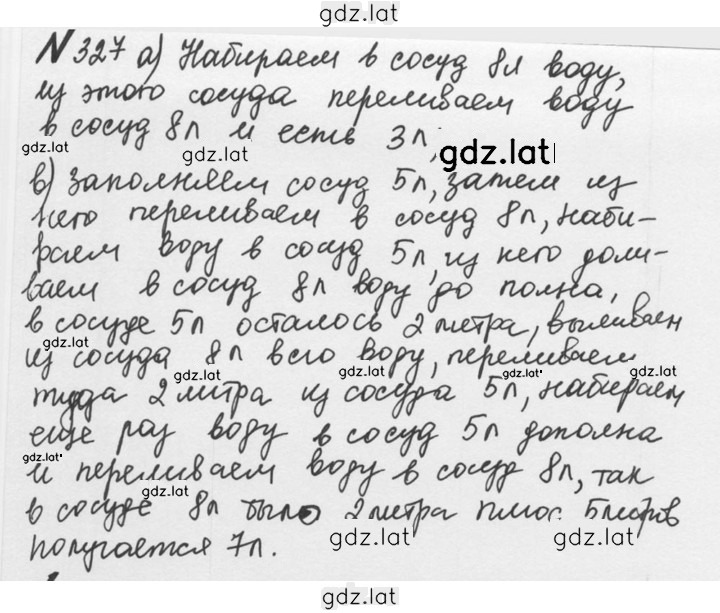 gdz.lat
N 327 а) Набираем в сосуд 8л воду,
из этого сосуда переливаем воду
в сосуд 8л и есть 3л,
gdz.lat gdz.lat gdz.lat
в) заполняем сосуд 5л, затем из
него переливаем в сосуд 8л, наби-
раем воду в сосуд 5л, из него доли-
ваем в сосуд 8л воду до полна,
в сосуде 5л осталось 2 литра, выливаем
gdz.lat
из сосуда 8л всю воду, переливаем
gdz.lat gdz.lat
туда 2 литра из сосуда 5л, набираем
еще раз воду в сосуд 5л дополна
gdz.lat
и переливаем воду в сосуд 8л, так
gdz.lat
в сосуде 8л было 2 литра плюс 5 литров
получается 7л.
gdz.lat gdz.lat
gdz.lat